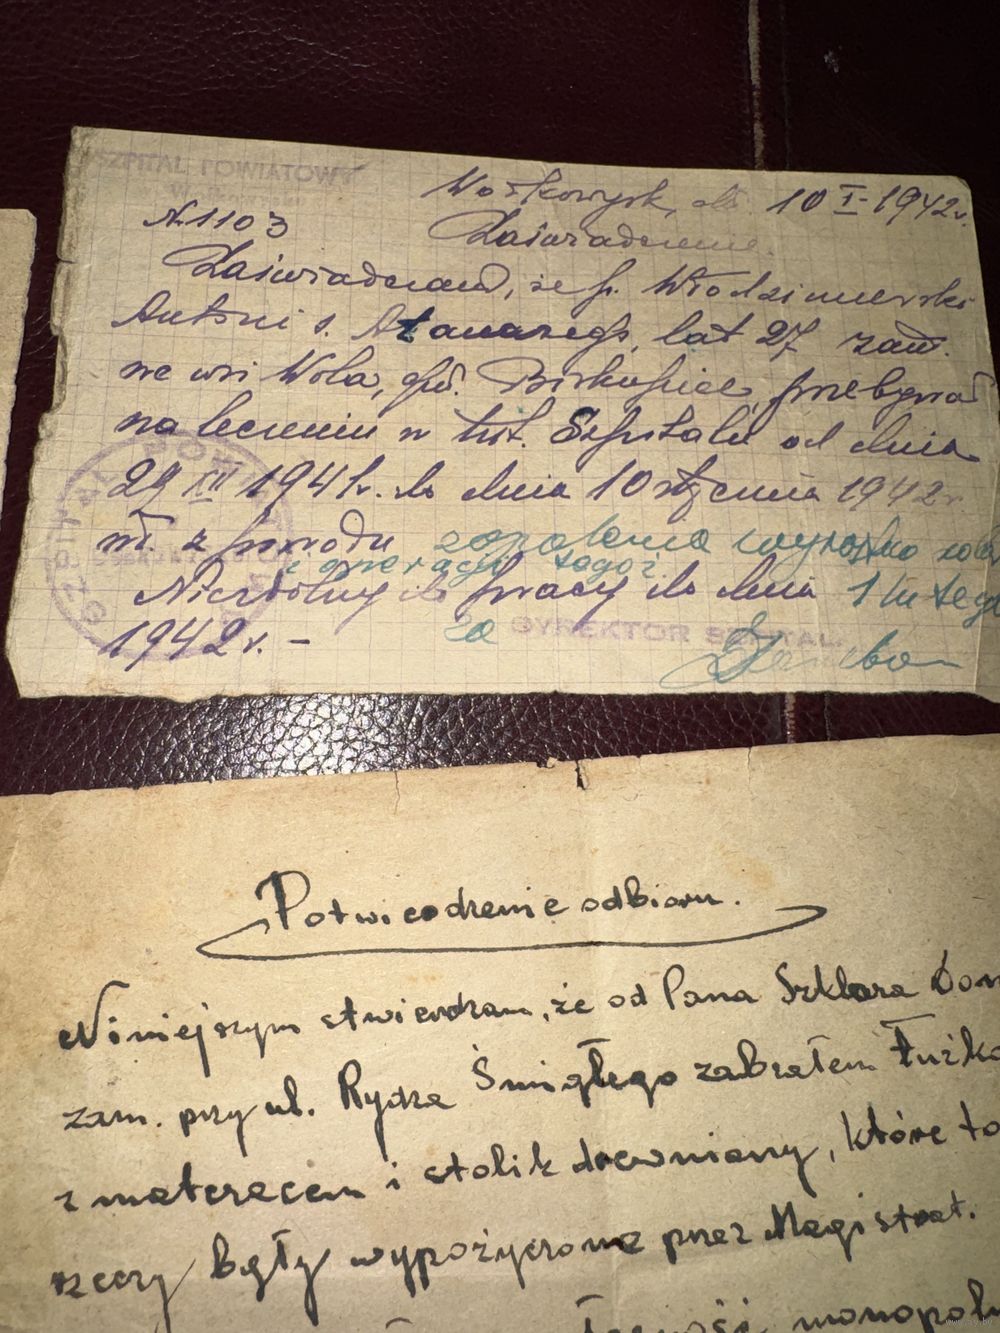 SZPITAL POWIATOWY
w Wołkowysku
Wołkowysk, dn. 10 I 1942 r.
№ 1103
Zaświadczenie.
Zaświadczam, że p. Włodzimierski
Antoni s. Atanazego, lat 27 zam.
we wsi Wola, gm. przebywał
na leczeniu w tut. Szpitalu od dnia
29 XII 1941 r. do dnia 10 stycznia 1942 r.
z powodu zapalenia wyrostka
i operacji tegoż
Niezdolny do pracy do dnia 1 lutego
1942 r. –
za DYREKTOR SZPITALA
Potwierdzenie odbioru.
Niniejszym stwierdzam, że od Pana Szklara
zam. przy ul. Rydza Śmigłego zabrałem łużko
z materacem i stolik drewniany, które to
rzeczy były wypożyczone przez Magistrat.